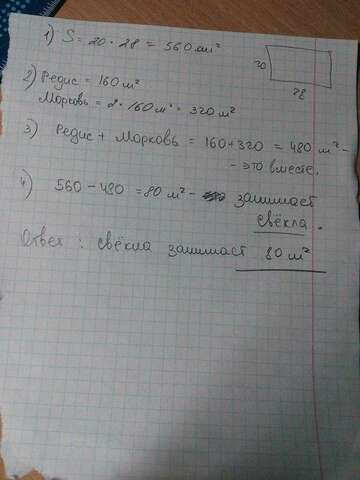 1) S = 20 · 28 = 560 м²
20
28
2) Редис = 160 м²
Морковь = 2 · 160 м² = 320 м²
3) Редис + Морковь = 160 + 320 = 480 м² -
- это вместе.
4) 560 - 480 = 80 м² - занимает
свёкла.
Ответ: свёкла занимает 80 м²